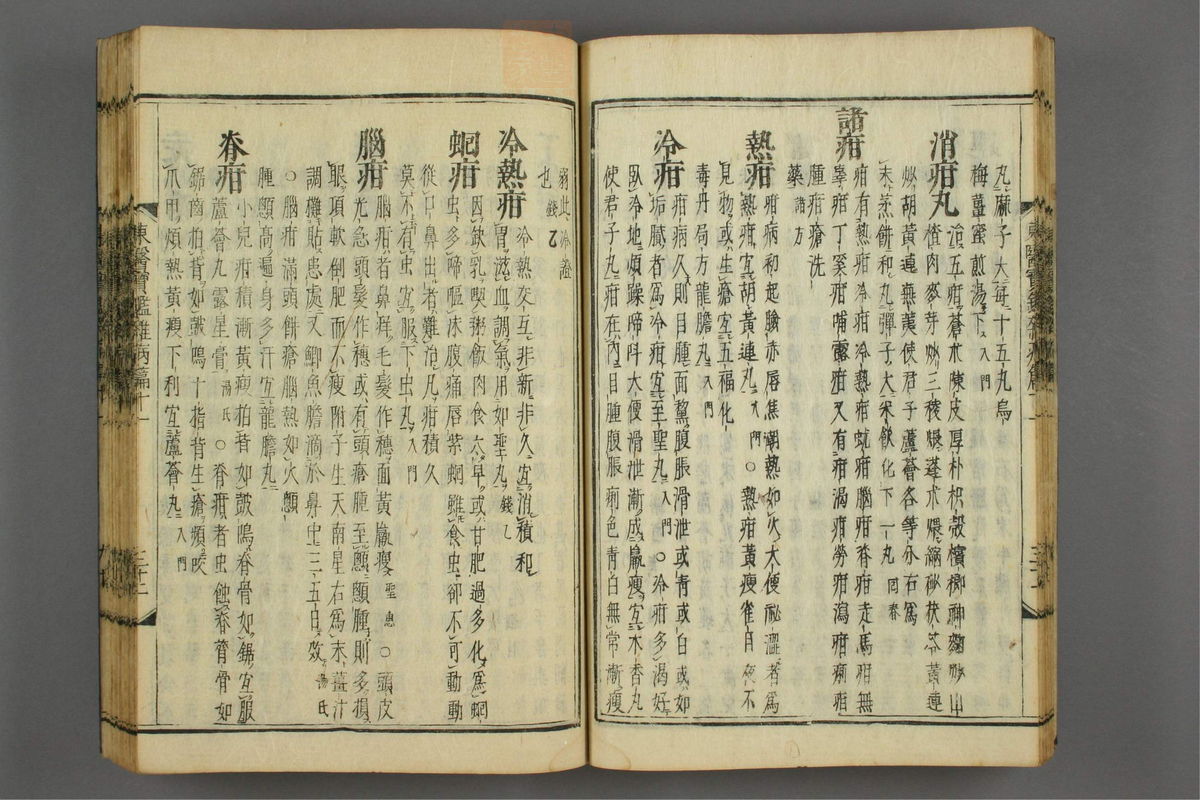 丸麻子大每十五丸烏
梅薑蜜煎湯下入門
消疳丸 治五疳蒼朮陳皮厚朴枳殼檳榔神麴炒山
楂肉麥芽炒三稜煨蓬朮煨縮砂茯苓黃連
炒胡黃連蕪荑使君子蘆薈各等分右爲
末蒸餅和丸彈子大米飮化下一丸回春
諸疳 疳有熱疳冷疳冷熱疳蛔疳腦疳脊疳走馬疳無
辜疳丁奚疳哺露疳又有疳渴疳勞疳瀉疳痢疳
腫疳瘡洗
藥諸方
熱疳 疳病初起臉赤唇焦潮熱如火大便祕澀者爲
熱疳宜胡黃連丸入門○熱疳黃瘦雀目夜不
見物或生瘡宜五福化
毒丹局方龍膽丸入門
冷疳 疳病久則目腫面黧腹脹滑泄或靑或白或如
垢膩者爲冷疳宜至聖丸入門○冷疳多渴好
臥冷地煩躁啼叫大便滑泄漸成羸瘦宜木香丸
使君子丸疳在內目腫腹脹痢色靑白無常漸瘦
弱此冷證
也錢乙
冷熱疳 冷熱交互非新非久宜消積和
胃滋血調氣用如聖丸錢乙
蛔疳 因飮乳喫粥飯肉食太早或甘肥過多化爲蛔
虫多啼嘔沫腹痛唇紫蛔雖食虫卻不可動動
從口鼻出者難治凡疳積久
莫不有虫宜服下虫丸入門
腦疳 腦疳者鼻痒毛髮作穗面黃羸瘦聖惠○頭皮
光急頭髮作穗或有頭瘡腫至顖顖腫則多損
眼項軟倒肥而不瘦附子生天南星右爲末薑汁
調攤貼患處又鯽魚膽滴於鼻中三五日效湯氏
○腦疳滿頭餠瘡腦熱如火顖
腫顖高遍身多汗宜龍膽丸
脊疳 小兒疳積漸黃瘦拍背如鼓鳴脊骨如鋸宜服
蘆薈丸露星膏湯氏○脊疳者虫蝕脊膂骨如
鋸齒拍背如鼓鳴十指背生瘡頻咬
爪甲煩熱黃瘦下利宜蘆薈丸入門
東醫寶鑑雜病篇十一
三十二